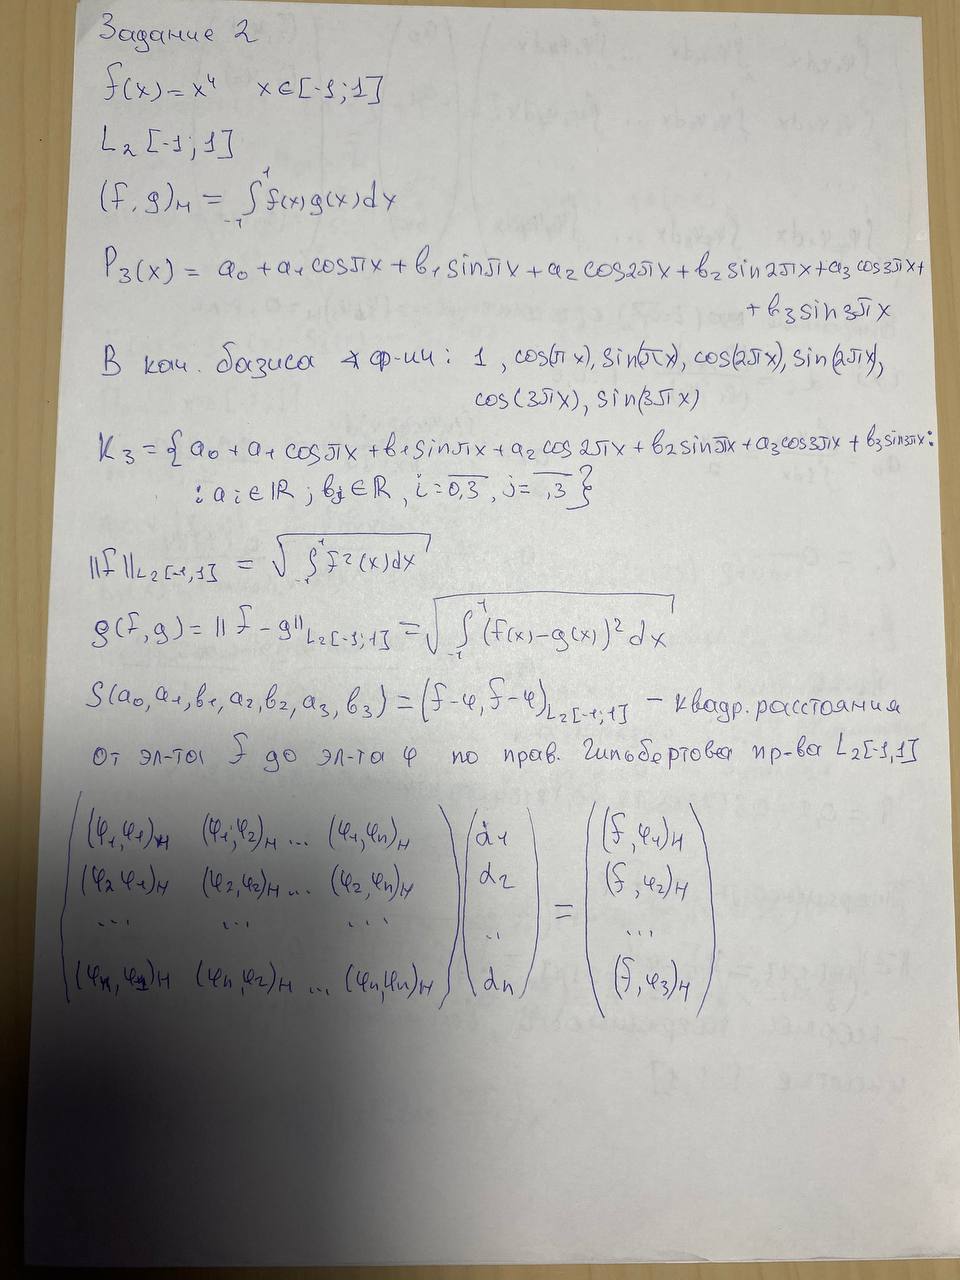 Задание 2
f(x) = x⁴ x ∈ [-1; 1]
L₂ [-1; 1]
(f, g)_H = ∫₋₁¹ f(x) g(x) dx
P₃(x) = a₀ + a₁ cos πx + b₁ sin πx + a₂ cos 2πx + b₂ sin 2πx + a₃ cos 3πx +
+ b₃ sin 3πx
В кач. базиса ∢ ф-ии: 1, cos(πx), sin(πx), cos(2πx), sin(2πx),
cos(3πx), sin(3πx)
K₃ = {a₀ + a₁ cos πx + b₁ sin πx + a₂ cos 2πx + b₂ sin πx + a₃ cos 3πx + b₃ sin 3πx :
: aᵢ ∈ ℝ ; bⱼ ∈ ℝ, i = 0,3, j = ,3}
||f||_L₂[-1,1] = √(∫₋₁¹ f²(x) dx)
ρ(f, g) = ||f - g||_L₂[-1;1] = √(∫₋₁¹ (f(x) - g(x))² dx)
S(a₀, a₁, b₁, a₂, b₂, a₃, b₃) = (f-φ, f-φ)_L₂[-1;1] - квадр. расстояния
от эл-та f до эл-та φ по прав. Гильбертова пр-ва L₂[-1,1]
(φ₁, φ₁)_H (φ₁; φ₂)_H ... (φ₁, φn)_H α₁ (f, φ₁)_H
(φ₂ φ₁)_H (φ₂, φ₂)_H ... (φ₂, φn)_H α₂ (f, φ₂)_H
... ... ... .. = ...
(φn, φ₁)_H (φn, φ₂)_H ... (φn, φn)_H αn (f, φ₃)_H